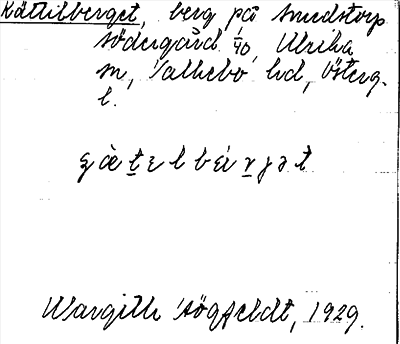 Kättilberget, berg på Smedstorp
södergård 1/40, Ulrika
sn, Valkebo hd, Österg.
l.
Margith Högfeldt, 1929.